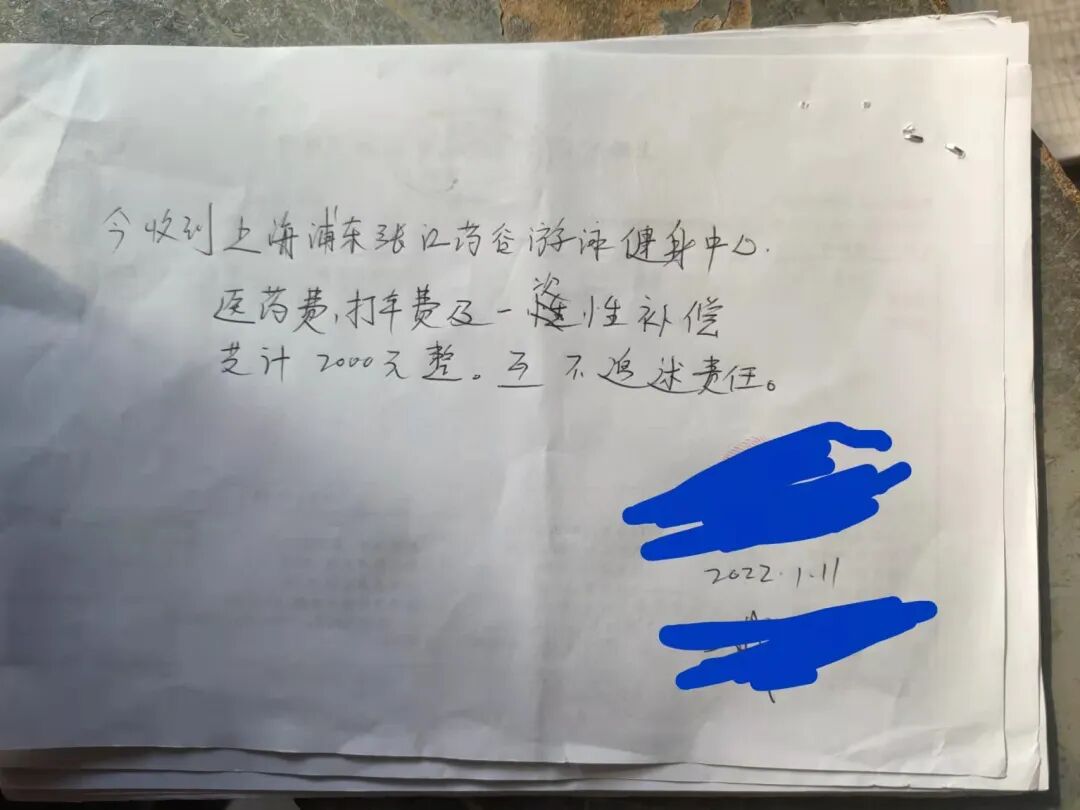 今收到上海浦东张江药谷游泳健身中心.
医药费、打车费及一次性补偿
共计2000元整。互不追求责任。
2022.1.11